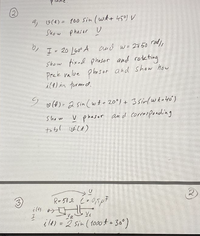 ②
a) v(t) = 100 sin(wt + 45°) V
show phasor V
b) I = 20 ∠60° A and w = 2π60 rad/s
show fixed phasor and rotating
peak value phasor and show how
i(t) is formed.
c) v(t) = 5 sin(wt + 20°) + 3 sin(wt + 45°)
show V phasor and corresponding
total v(t)
②
③
V
R = 5Ω
i(t) = 2 sin(1000t + 30°)